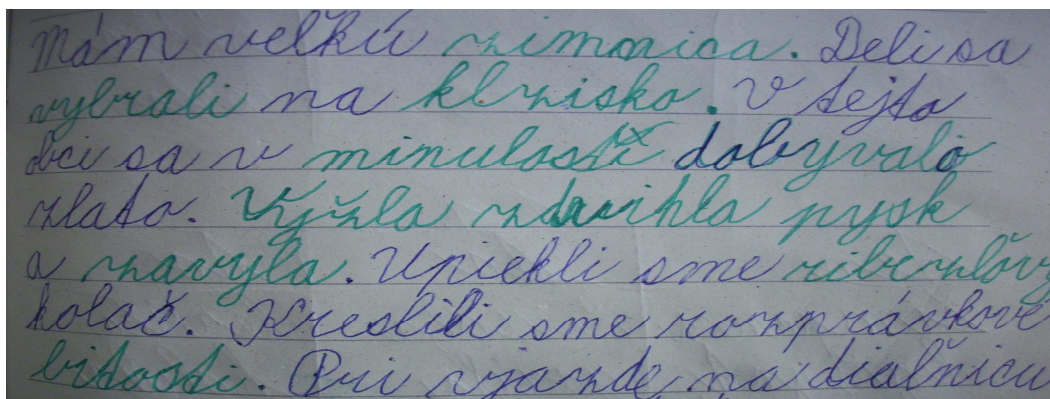 Mám veľkú zimnica. Deli sa
vybrali na klzisko. V tejto
obci sa v minulosti dobyvalo
zlato. Vyžla zdvihla pysk
a zavyla. Upiekli sme ribezlővy
kolač. Kreslili sme rozprávkové
bitosti. Pri vjazde na dialnicu